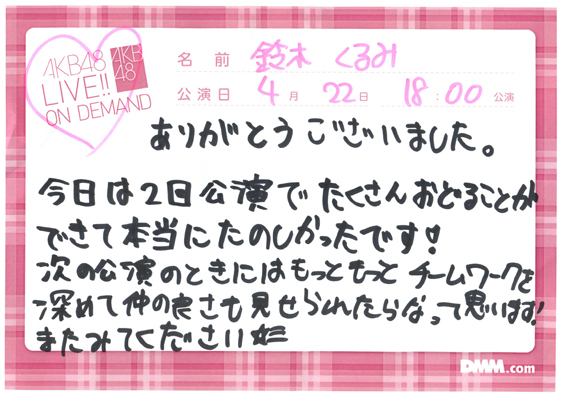 AKB48
LIVE!!
ON DEMAND
AKB
48
名前 鈴木 くるみ
公演日 4月 22日 18:00 公演
ありがとうございました。
今日は2日公演でたくさんおどることが
できて本当にたのしかったです!
次の公演のときにはもっともっとチームワークを
深めて仲の良さも見せられたらなって思います!
またみてください
DMM.com